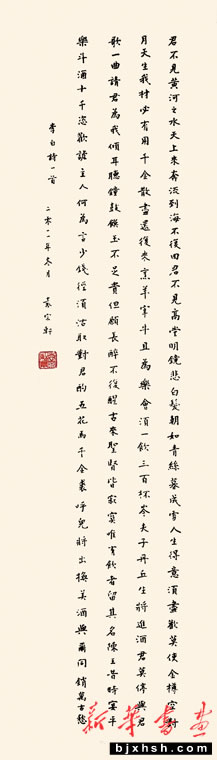 君不见黄河之水天上来奔流到海不复回君不见高堂明镜悲白髮朝如青絲暮成雪人生得意須盡歡莫使金樽空對
月天生我材必有用千金散盡還復來烹羊宰牛且為樂會須一飲三百杯岑夫子丹丘生將進酒君莫停與君
歌一曲請君為我傾耳聽鐘鼓饌玉不足貴但願長醉不復醒古來聖賢皆寂寞唯有飲者留其名陳王昔時宴平
樂斗酒十千恣歡謔主人何為言少錢徑須沽取對君酌五花馬千金裘呼兒將出換美酒與爾同銷萬古愁
李白詩一首 二零一一年冬月
新华书画
bjxhsh.com